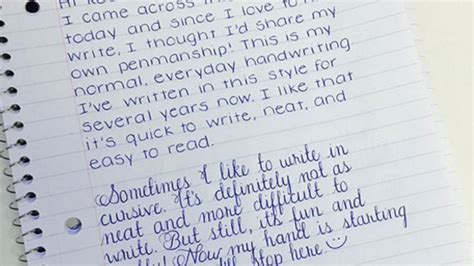 I came across
today and since I love to
write, I thought I'd share my
own penmanship! This is my
normal, everyday handwriting
I've written in this style for
several years now. I like that
it's quick to write, neat, and
easy to read.
Sometimes I like to write in
cursive. It's definitely not as
neat and more difficult to
write. But still, it's fun and
Now my hand is starting
stop here